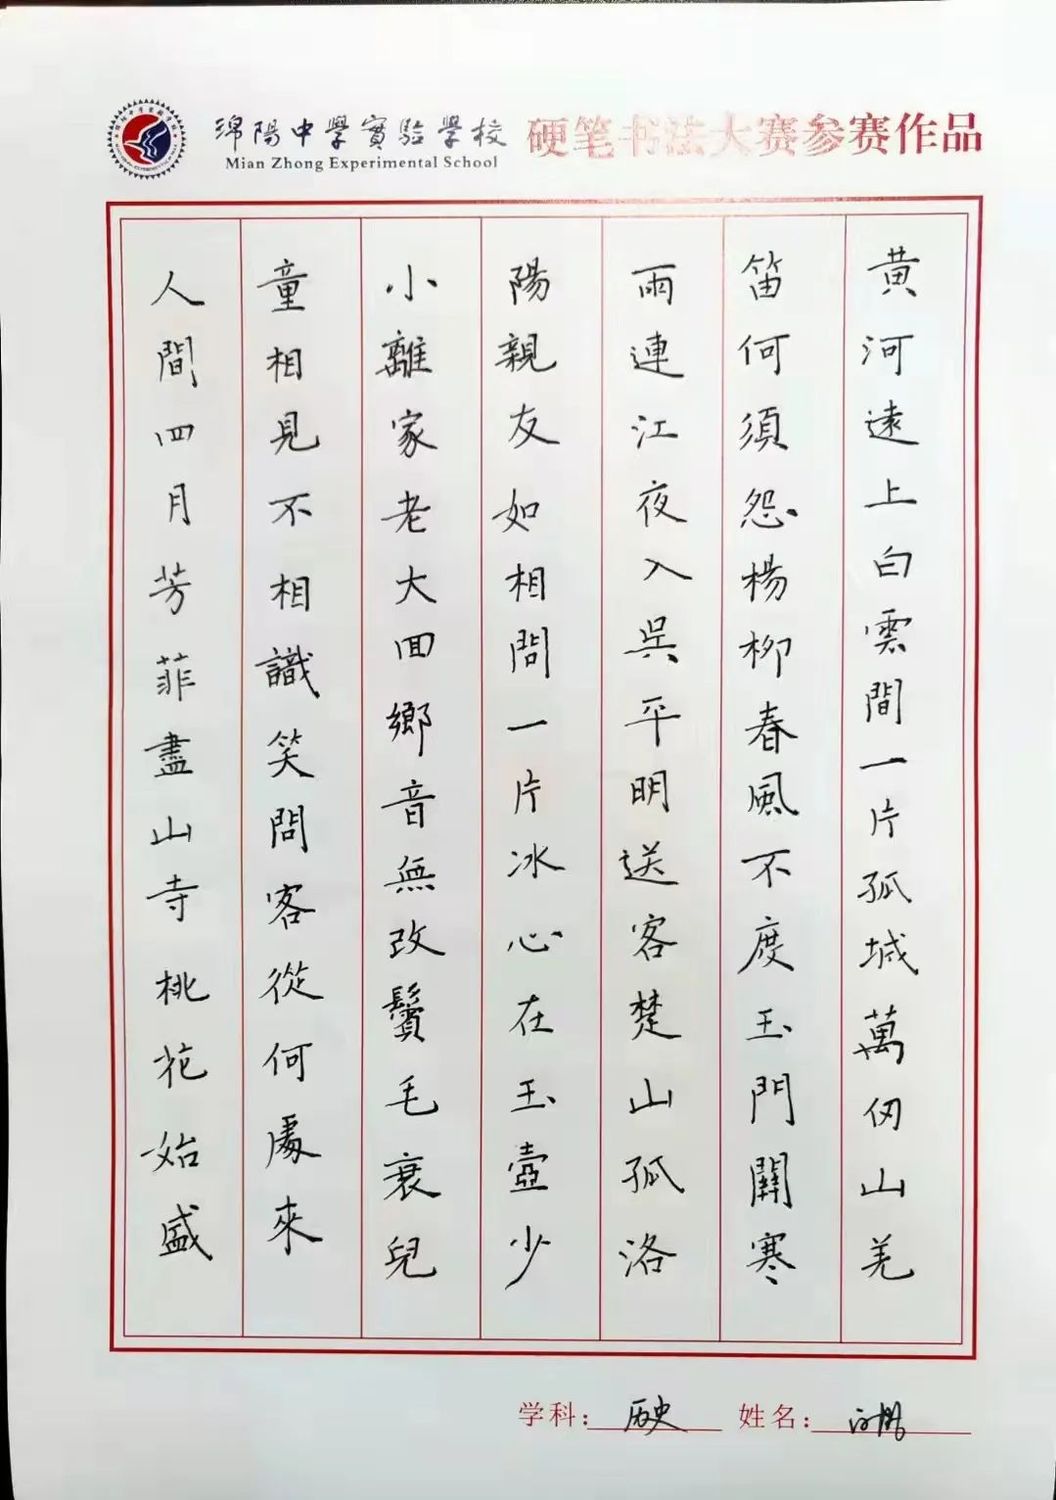 綿陽中學實驗學校
Mian Zhong Experimental School
硬笔书法大赛参赛作品
黄河遠上白雲間一片孤城萬仞山羌
笛何須怨楊柳春風不度玉門關寒
雨連江夜入吳平明送客楚山孤洛
陽親友如相問一片冰心在玉壺少
小離家老大回鄉音無改鬢毛衰兒
童相見不相識笑問客從何處來
人間四月芳菲盡山寺桃花始盛
学科：历史
姓名：